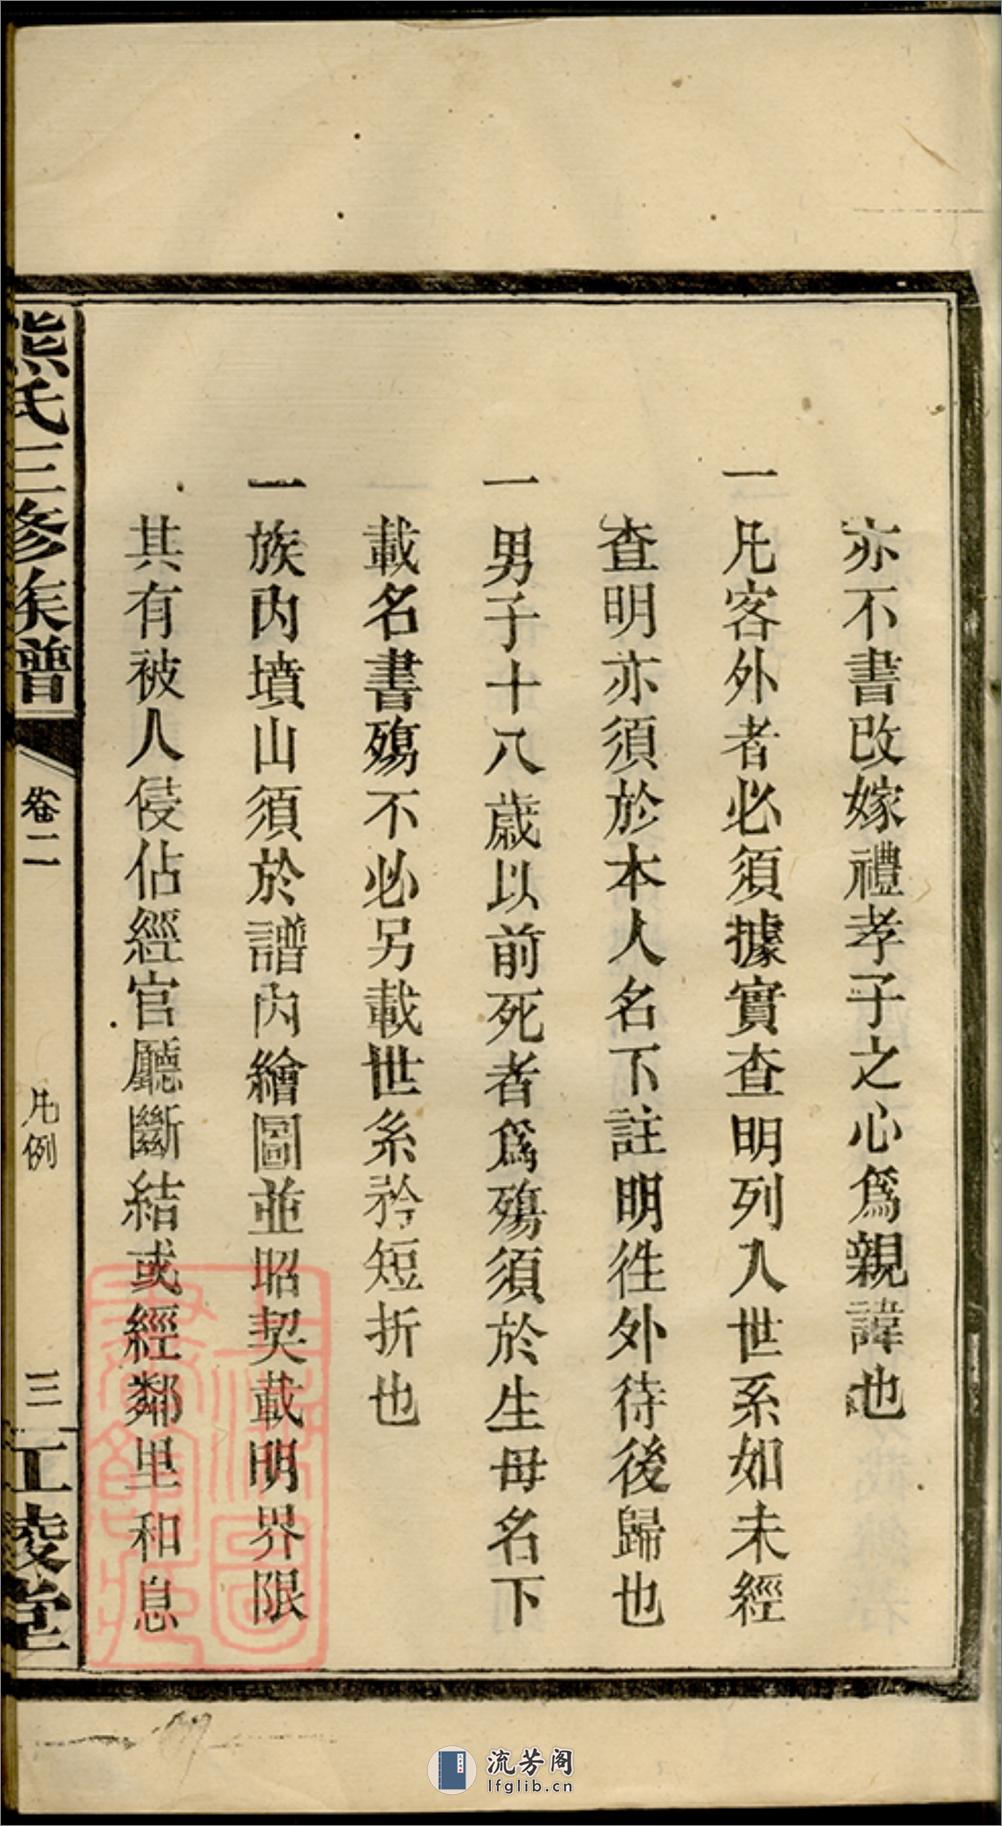 亦不書改嫁禮孝子之心爲親諱也
一凡客外者必須據實查明列入世系如未經
查明亦須於本人名下註明徃外待後歸也
一男子十八歲以前死者爲殤須於生母名下
載名書殤不必另載世系矜短折也
一族內墳山須於譜內繪圖並昭契載明界限
其有被人侵佔經官廳斷結或經鄰里和息
熊氏三修族譜
卷二
凡例
三
江陵堂
流芳阁
lfglib.cn